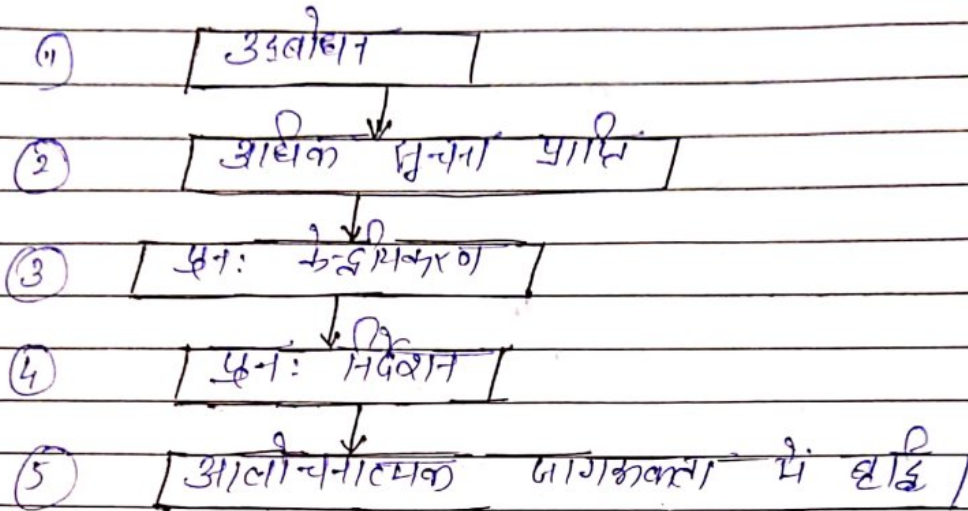 (1) उद्बोधन
(2) अधिक सूचना प्राप्ति
(3) पुनः केन्द्रीयकरण
(4) पुनः निर्देशन
(5) आलोचनात्मक जागरूकता में वृद्धि